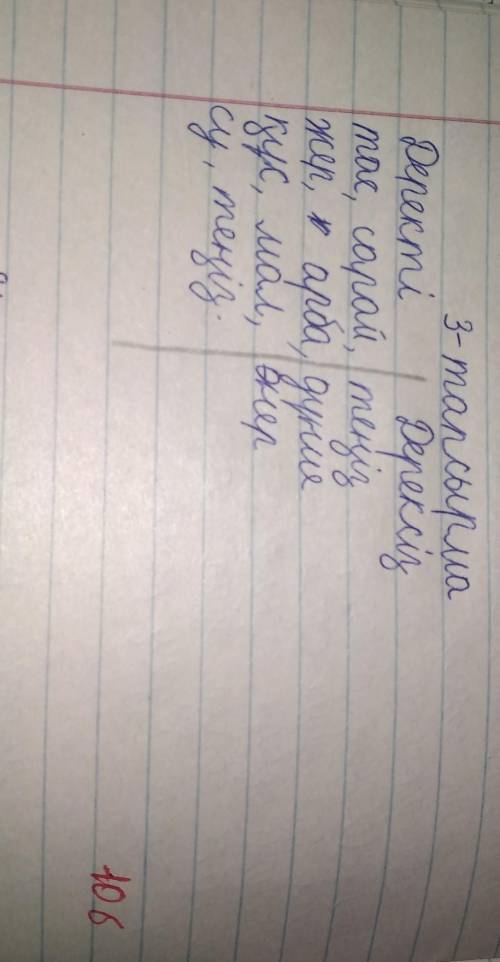 3-тапсырма
Деректі Дерексіз
тас, сарай, теңіз
жер, арба, дүние
құс, мал, өнер
су, теңіз.
10 б